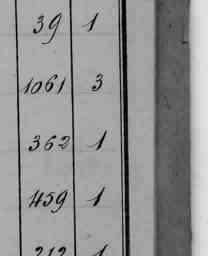 39 1
1061 3
362 1
459 1
212 1